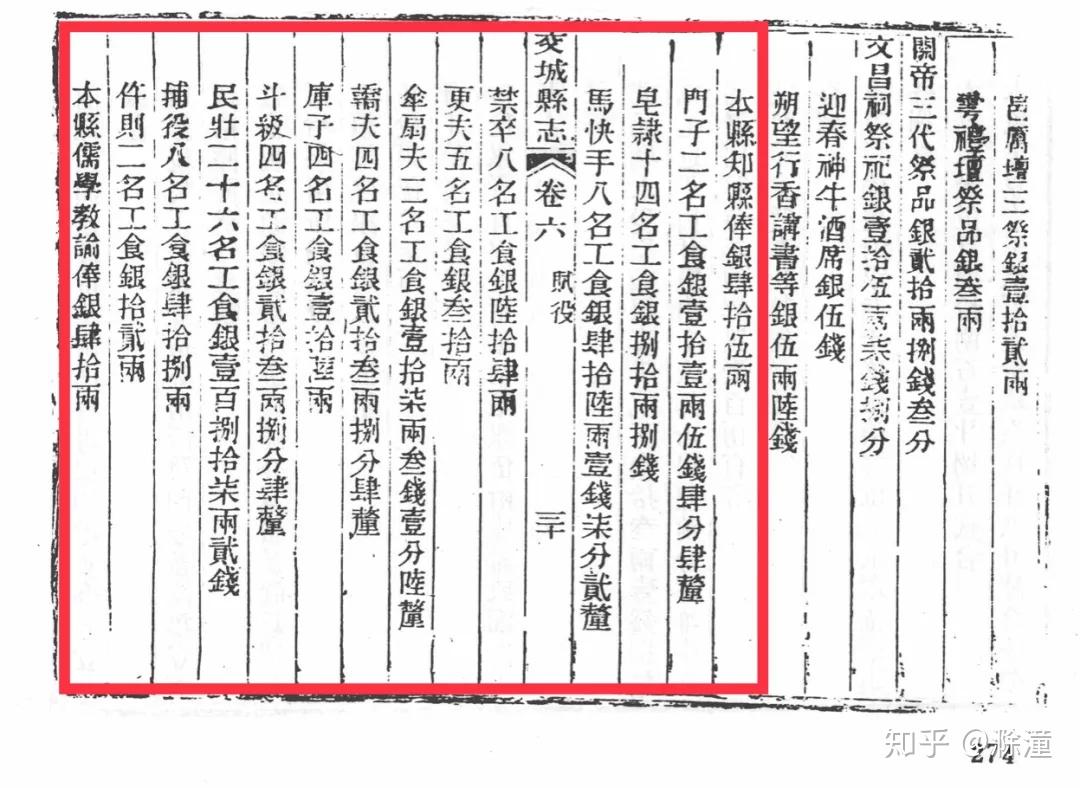 邑厲壇三祭銀壹拾貳兩
雩禮壇祭品銀叁兩
關帝三代祭品銀貳拾兩捌錢叁分
文昌祠祭祀銀壹拾伍兩柒錢捌分
迎春神牛酒席銀伍錢
朔望行香講書等銀伍兩陸錢
本縣知縣俸銀肆拾伍兩
門子二名工食銀壹拾壹兩伍錢肆分肆釐
皂隷十四名工食銀捌拾兩捌錢
馬快手八名工食銀肆拾陸兩壹錢柒分貳釐
交城縣志 卷六 賦役 三十
禁卒八名工食銀陸拾肆兩
更夫五名工食銀叁拾兩
傘扇夫三名工食銀壹拾柒兩叁錢壹分陸釐
轎夫四名工食銀貳拾叁兩捌分肆釐
庫子四名工食銀壹拾
兩
斗級四名工食銀貳拾叁兩捌分肆釐
民壯二十六名工食銀壹百捌拾柒兩貳錢
捕役八名工食銀肆拾捌兩
仵則二名工食銀拾貳兩
本縣儒學教諭俸銀肆拾兩
274
知乎 @滁潼